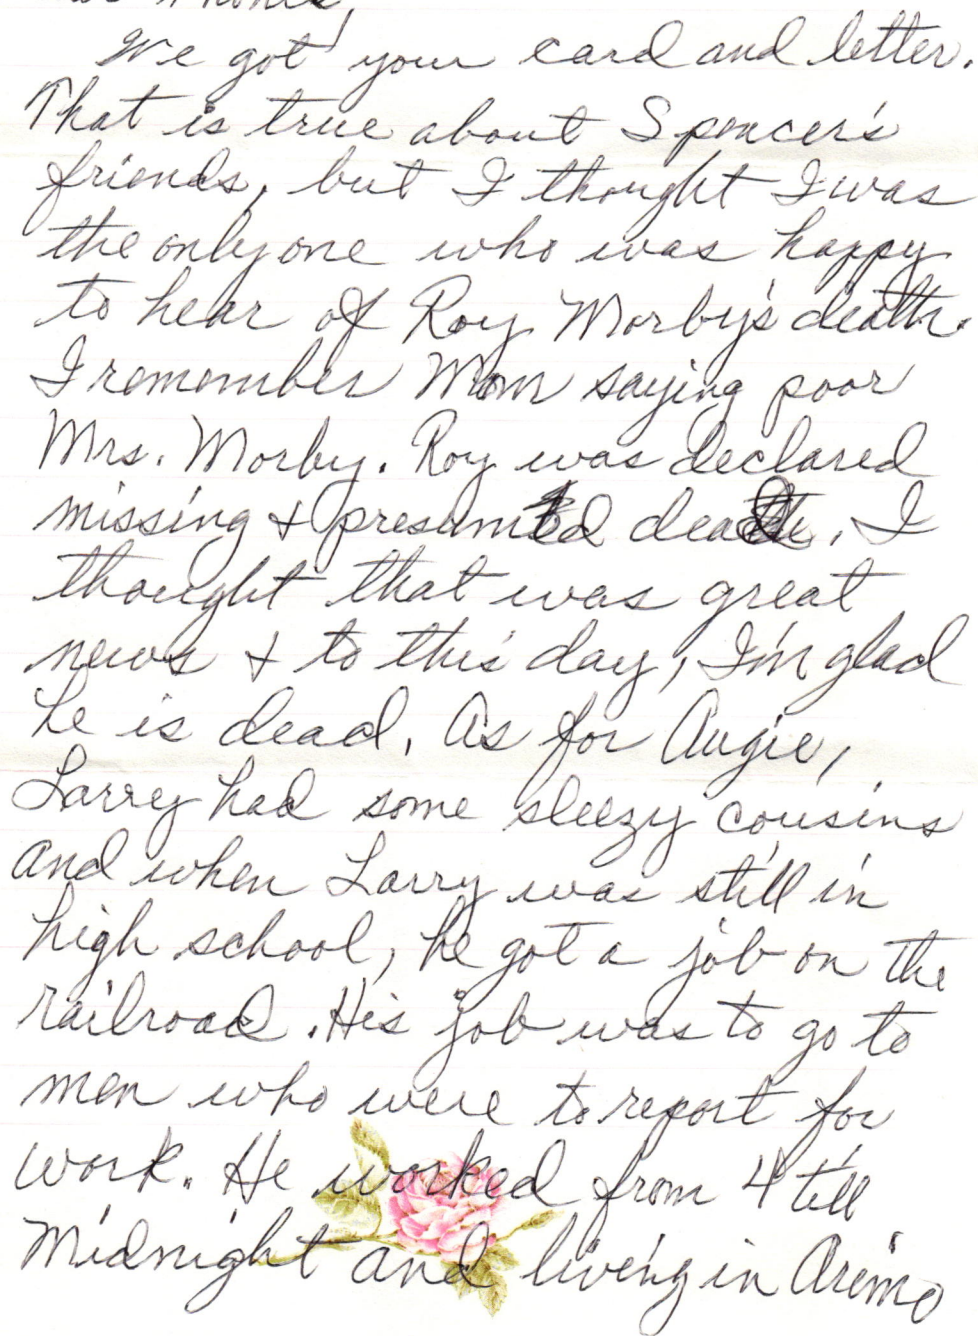 We got your card and letter.
That is true about Spencer's
friends, but I thought I was
the only one who was happy
to hear of Roy Morby's death.
I remember Mom saying poor
Mrs. Morby. Roy was declared
missing & presumed dead. I
thought that was great
news & to this day, I'm glad
he is dead. As for Augie,
Larrey had some sleezy cousins
and when Larry was still in
high school, he got a job on the
railroad. His job was to go to
men who were to report for
work. He worked from 4 till
Midnight and living in Arimo